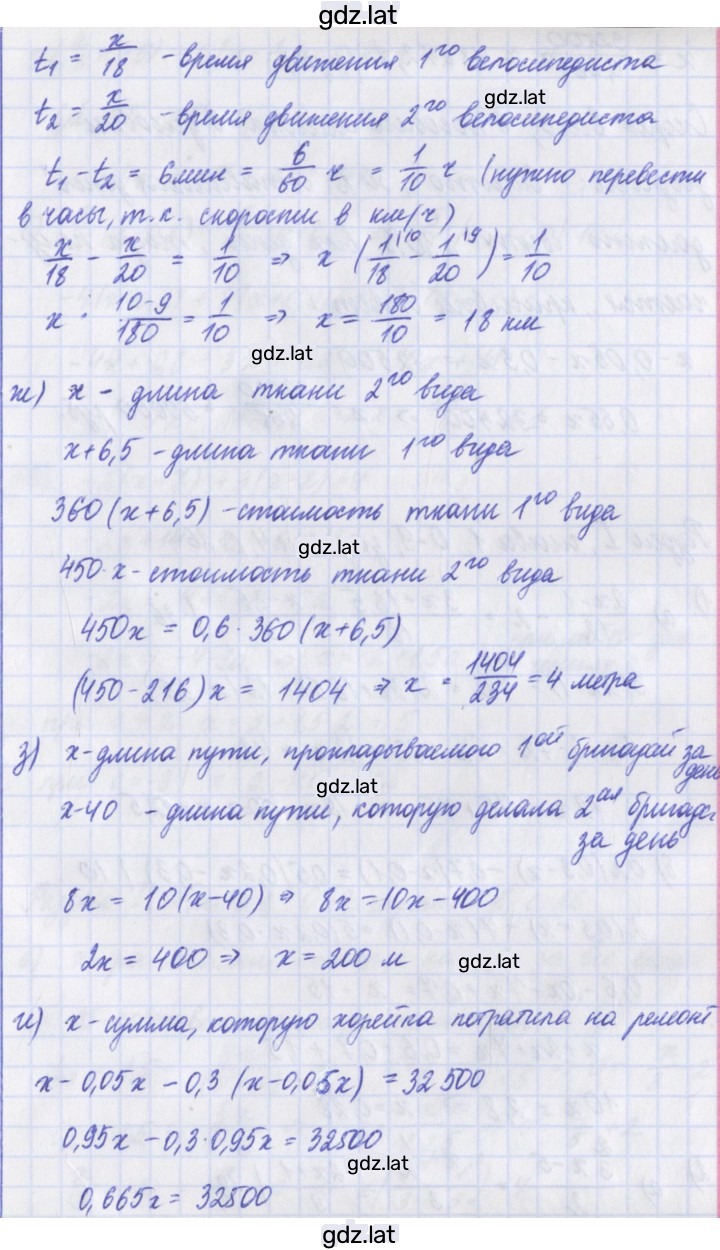 gdz.lat
t₁ = x/18 - время движения 1го велосипедиста
gdz.lat
t₂ = x/20 - время движения 2го велосипедиста
t₁ - t₂ = 6 мин = 6/60 ч = 1/10 ч (нужно перевести
в часы, т.к. скорости в км/ч)
x/18 - x/20 = 1/10 ⇒ x (1/18 |10 - 1/20 |9) = 1/10
x · (10-9)/180 = 1/10 ⇒ x = 180/10 = 18 км
gdz.lat
ж) x - длина ткани 2го вида
x+6,5 - длина ткани 1го вида
360(x+6,5) - стоимость ткани 1го вида
gdz.lat
450·x - стоимость ткани 2го вида
450x = 0,6·360(x+6,5)
(450-216)x = 1404 ⇒ x = 1404/234 = 4 метра
з) x - длина пути, прокладываемого 1ой бригадай за
день
gdz.lat
x-40 - длина пути, которую делала 2ая бригада
за день
8x = 10(x-40) ⇒ 8x = 10x - 400
2x = 400 ⇒ x = 200 м
gdz.lat
и) x - сумма, которую хозейка потратила на ремонт
x - 0,05x - 0,3 (x-0,05x) = 32 500
0,95x - 0,3·0,95x = 32500
gdz.lat
0,665x = 32500
gdz.lat